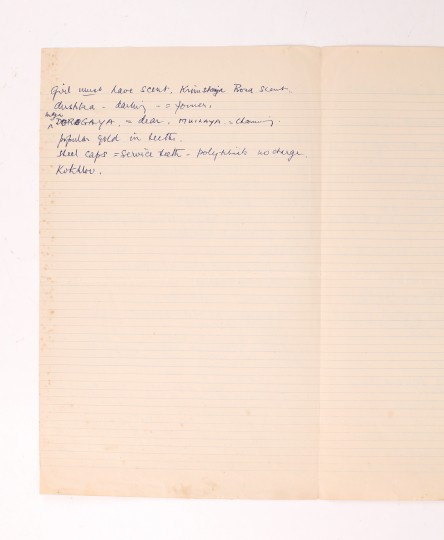 Girl must have scent. Krimskaya Rosa scent.
dushka - darling - = former.
DOROGAYA. = dear. MILAYA = Charming.
popular gold in teeth.
steel caps = service teeth - polyclinic no charge
Kokhlov.